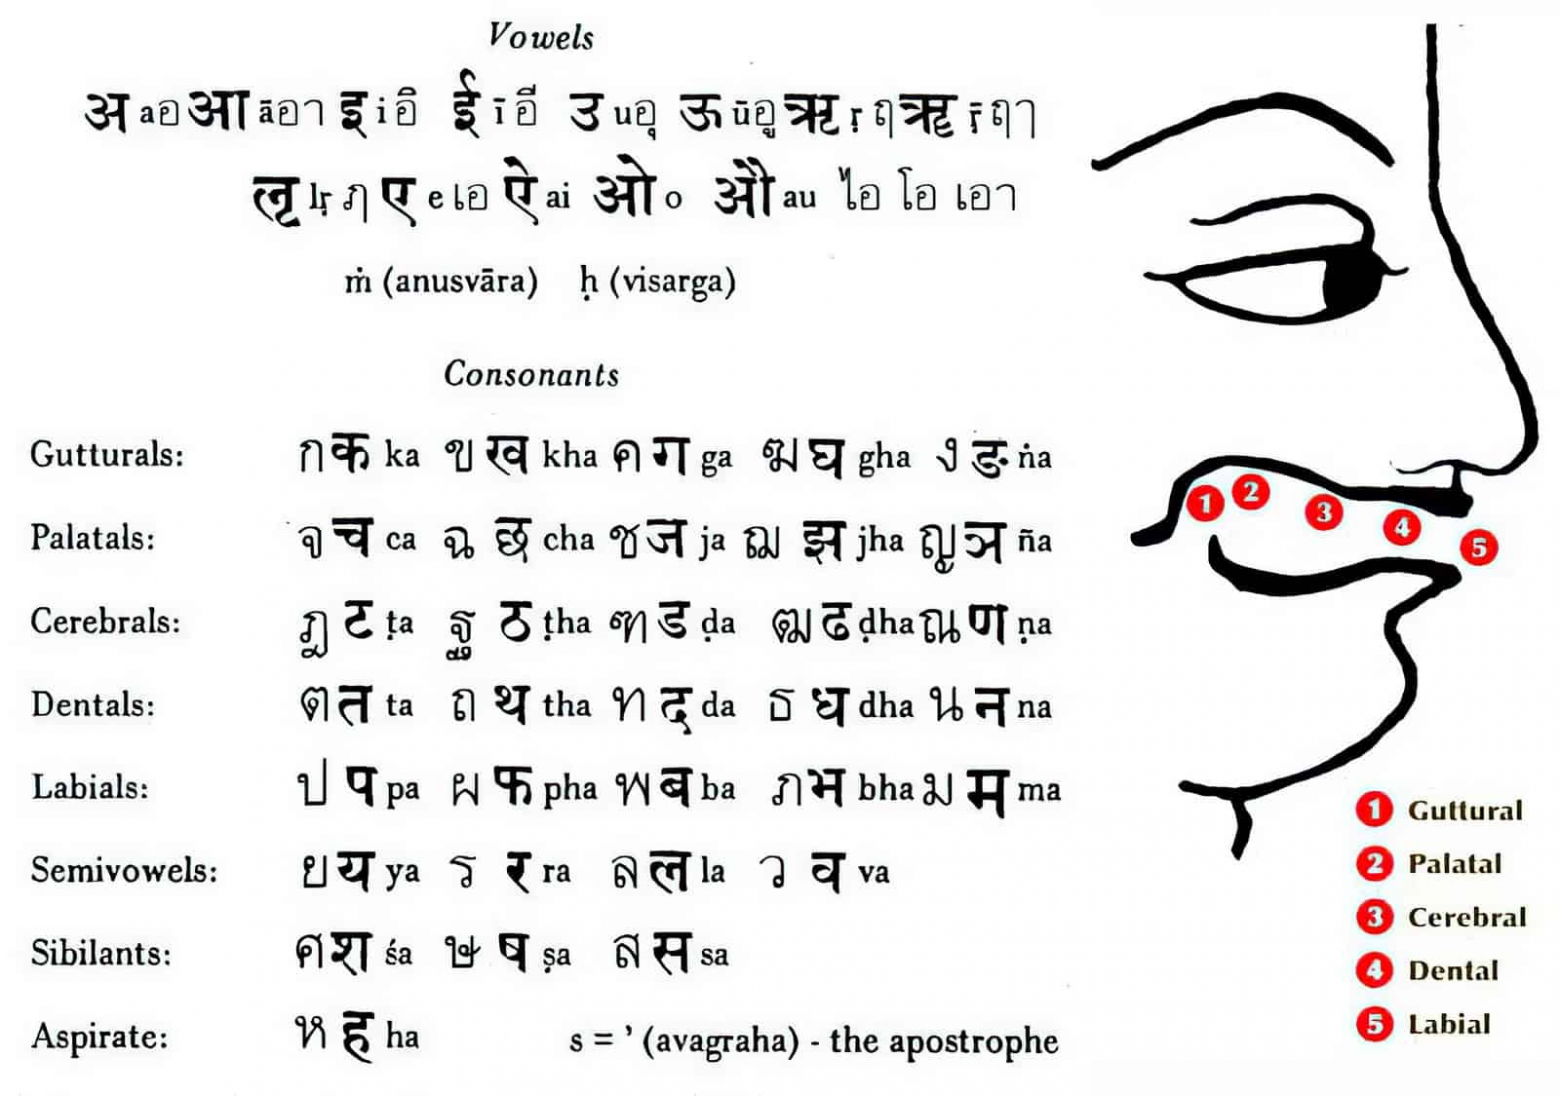 Vowels
अ a อ आ ā อา इ i อิ ई ī อี उ u อุ ऊ ū อู ऋ ṛ ฤ ॠ ṝ ฤา
ऌ lṛ ฦ ए e เอ ऐ ai ओ o औ au ไอ โอ เอา
ṁ (anusvāra) ḥ (visarga)
Consonants
Gutturals: ก क ka ข ख kha ค ग ga ฆ घ gha ง ङ ṅa
Palatals: จ च ca ฉ छ cha ช ज ja ฌ झ jha ญ ञ ña
Cerebrals: ฏ ट ṭa ฐ ठ ṭha ฑ ड ḍa ฒ ढ ḍha ณ ण ṇa
Dentals: ต त ta ถ थ tha ท द da ธ ध dha น न na
Labials: ป प pa ผ फ pha พ ब ba ภ भ bha ม म ma
Semivowels: ย य ya ร र ra ล ल la ว व va
Sibilants: ศ श śa ษ ष ṣa ส स sa
Aspirate: ห ह ha s = ’ (avagraha) - the apostrophe
1 2 3 4 5
1 Guttural
2 Palatal
3 Cerebral
4 Dental
5 Labial